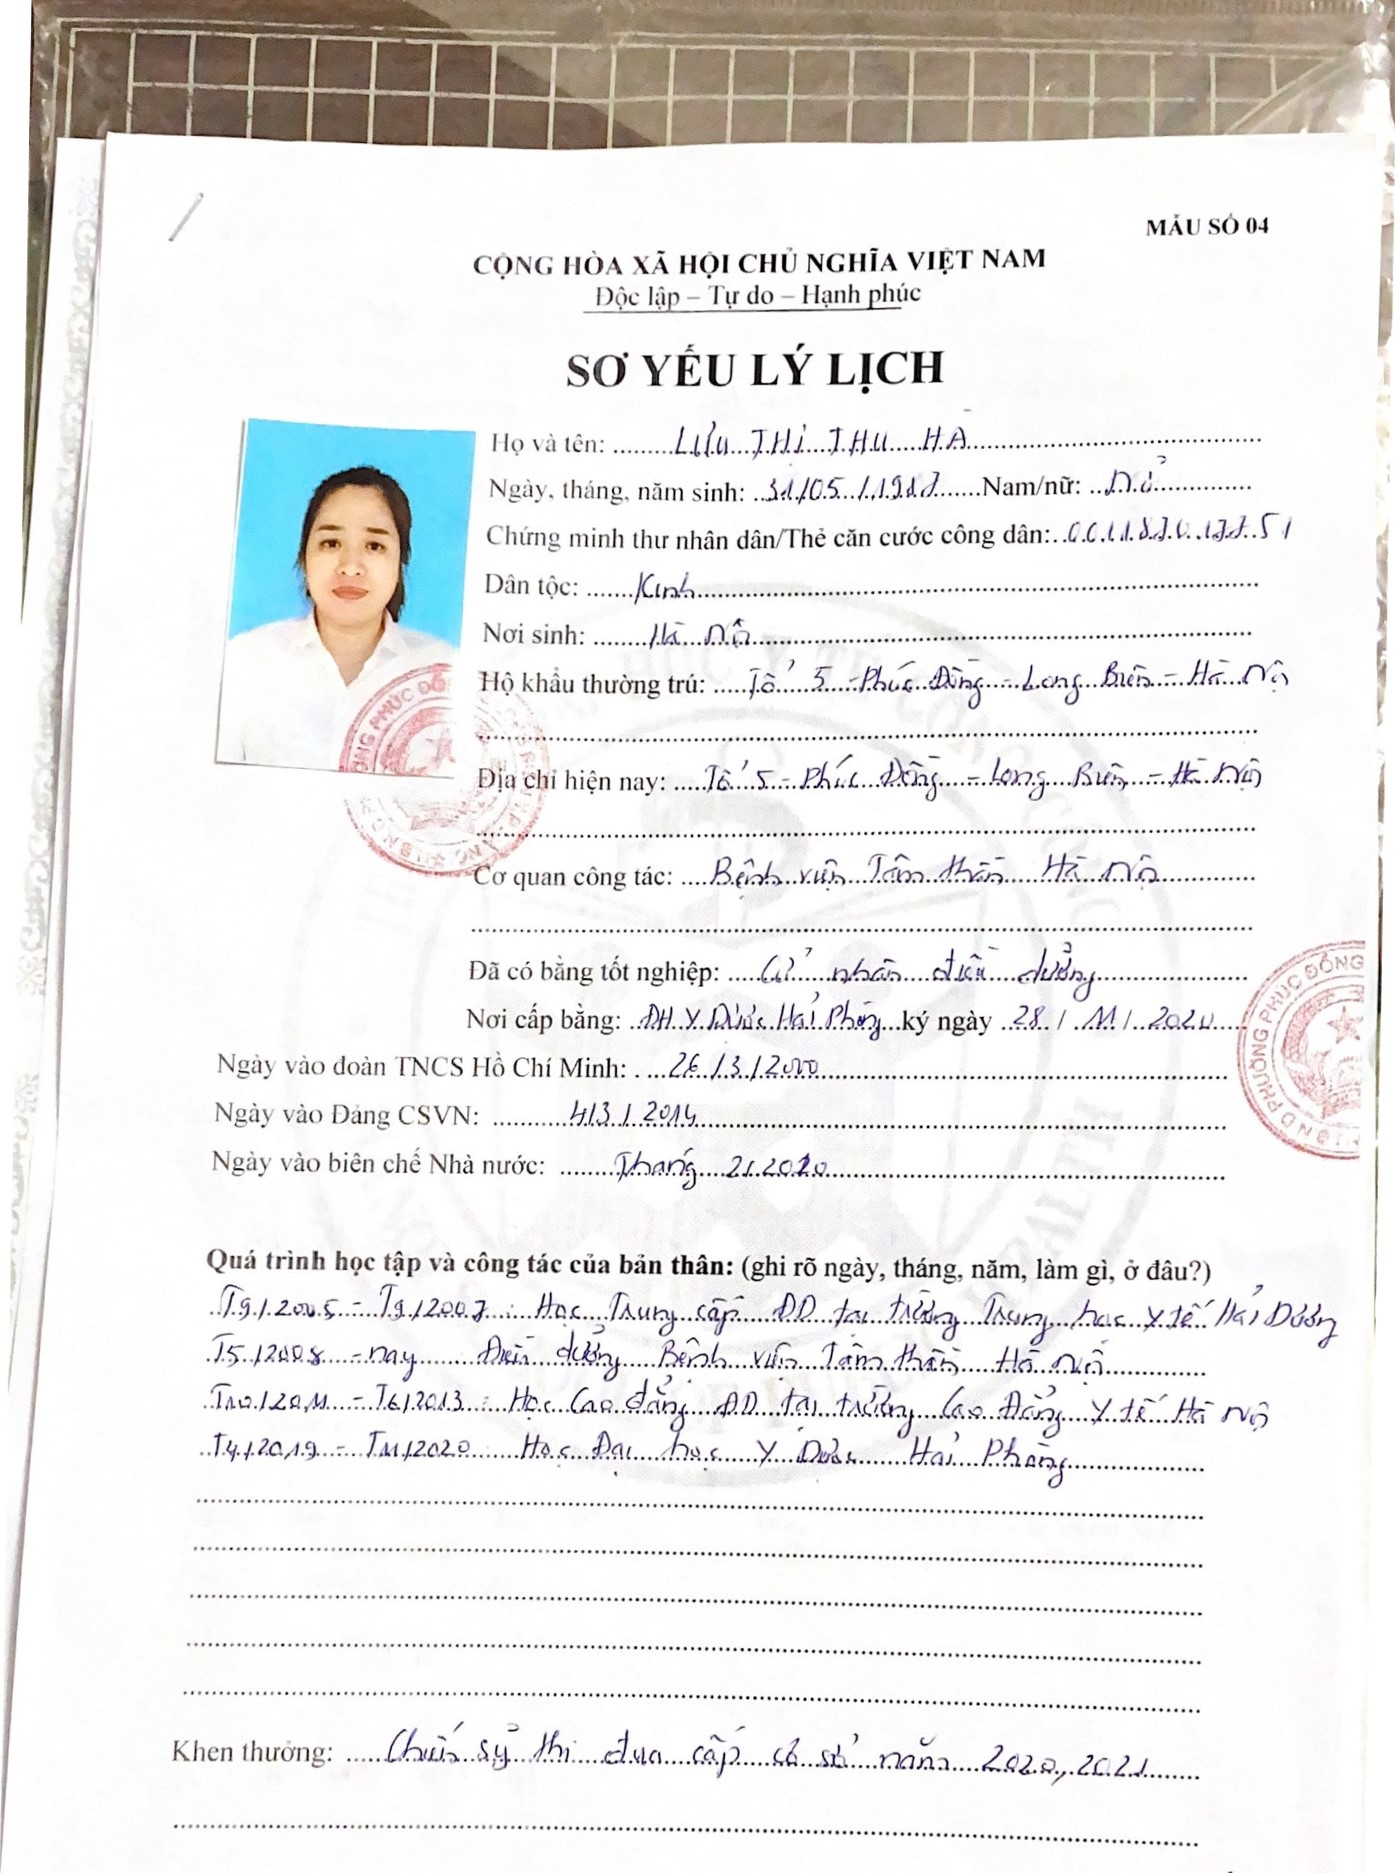 MẪU SỐ 04
CỘNG HÒA XÃ HỘI CHỦ NGHĨA VIỆT NAM
Độc lập – Tự do – Hạnh phúc
SƠ YẾU LÝ LỊCH
Họ và tên: LƯU THỊ THU HÀ
Ngày, tháng, năm sinh: 31/05/1987 Nam/nữ: Nữ
Chứng minh thư nhân dân/Thẻ căn cước công dân:
Dân tộc: Kinh
Nơi sinh: Hà Nội
Hộ khẩu thường trú: Tổ 5 - Phúc Đồng - Long Biên - Hà Nội
Địa chỉ hiện nay: Tổ 5 - Phúc Đồng - Long Biên - Hà Nội
Cơ quan công tác: Bệnh viện Tâm thần Hà Nội
Đã có bằng tốt nghiệp: Cử nhân điều dưỡng
Nơi cấp bằng: ĐH Y Dược Hải Phòng ký ngày 28 / 11 / 2020
Ngày vào đoàn TNCS Hồ Chí Minh: 26/3/2000
Ngày vào Đảng CSVN: 4/3/2014
Ngày vào biên chế Nhà nước: Tháng 2/2020
Quá trình học tập và công tác của bản thân: (ghi rõ ngày, tháng, năm, làm gì, ở đâu?)
T9/2005 - T9/2007 : Học Trung cấp ĐD tại trường Trung học Y tế Hải Dương
T5/2008 - nay Điều dưỡng Bệnh viện Tâm thần Hà Nội
T10/2011 - T6/2013 : Học Cao đẳng ĐD tại trường Cao Đẳng Y tế Hà Nội
T4/2019 - T11/2020 : Học Đại học Y Dược Hải Phòng
Khen thưởng: Chiến sỹ thi đua cấp cơ sở năm 2020, 2021